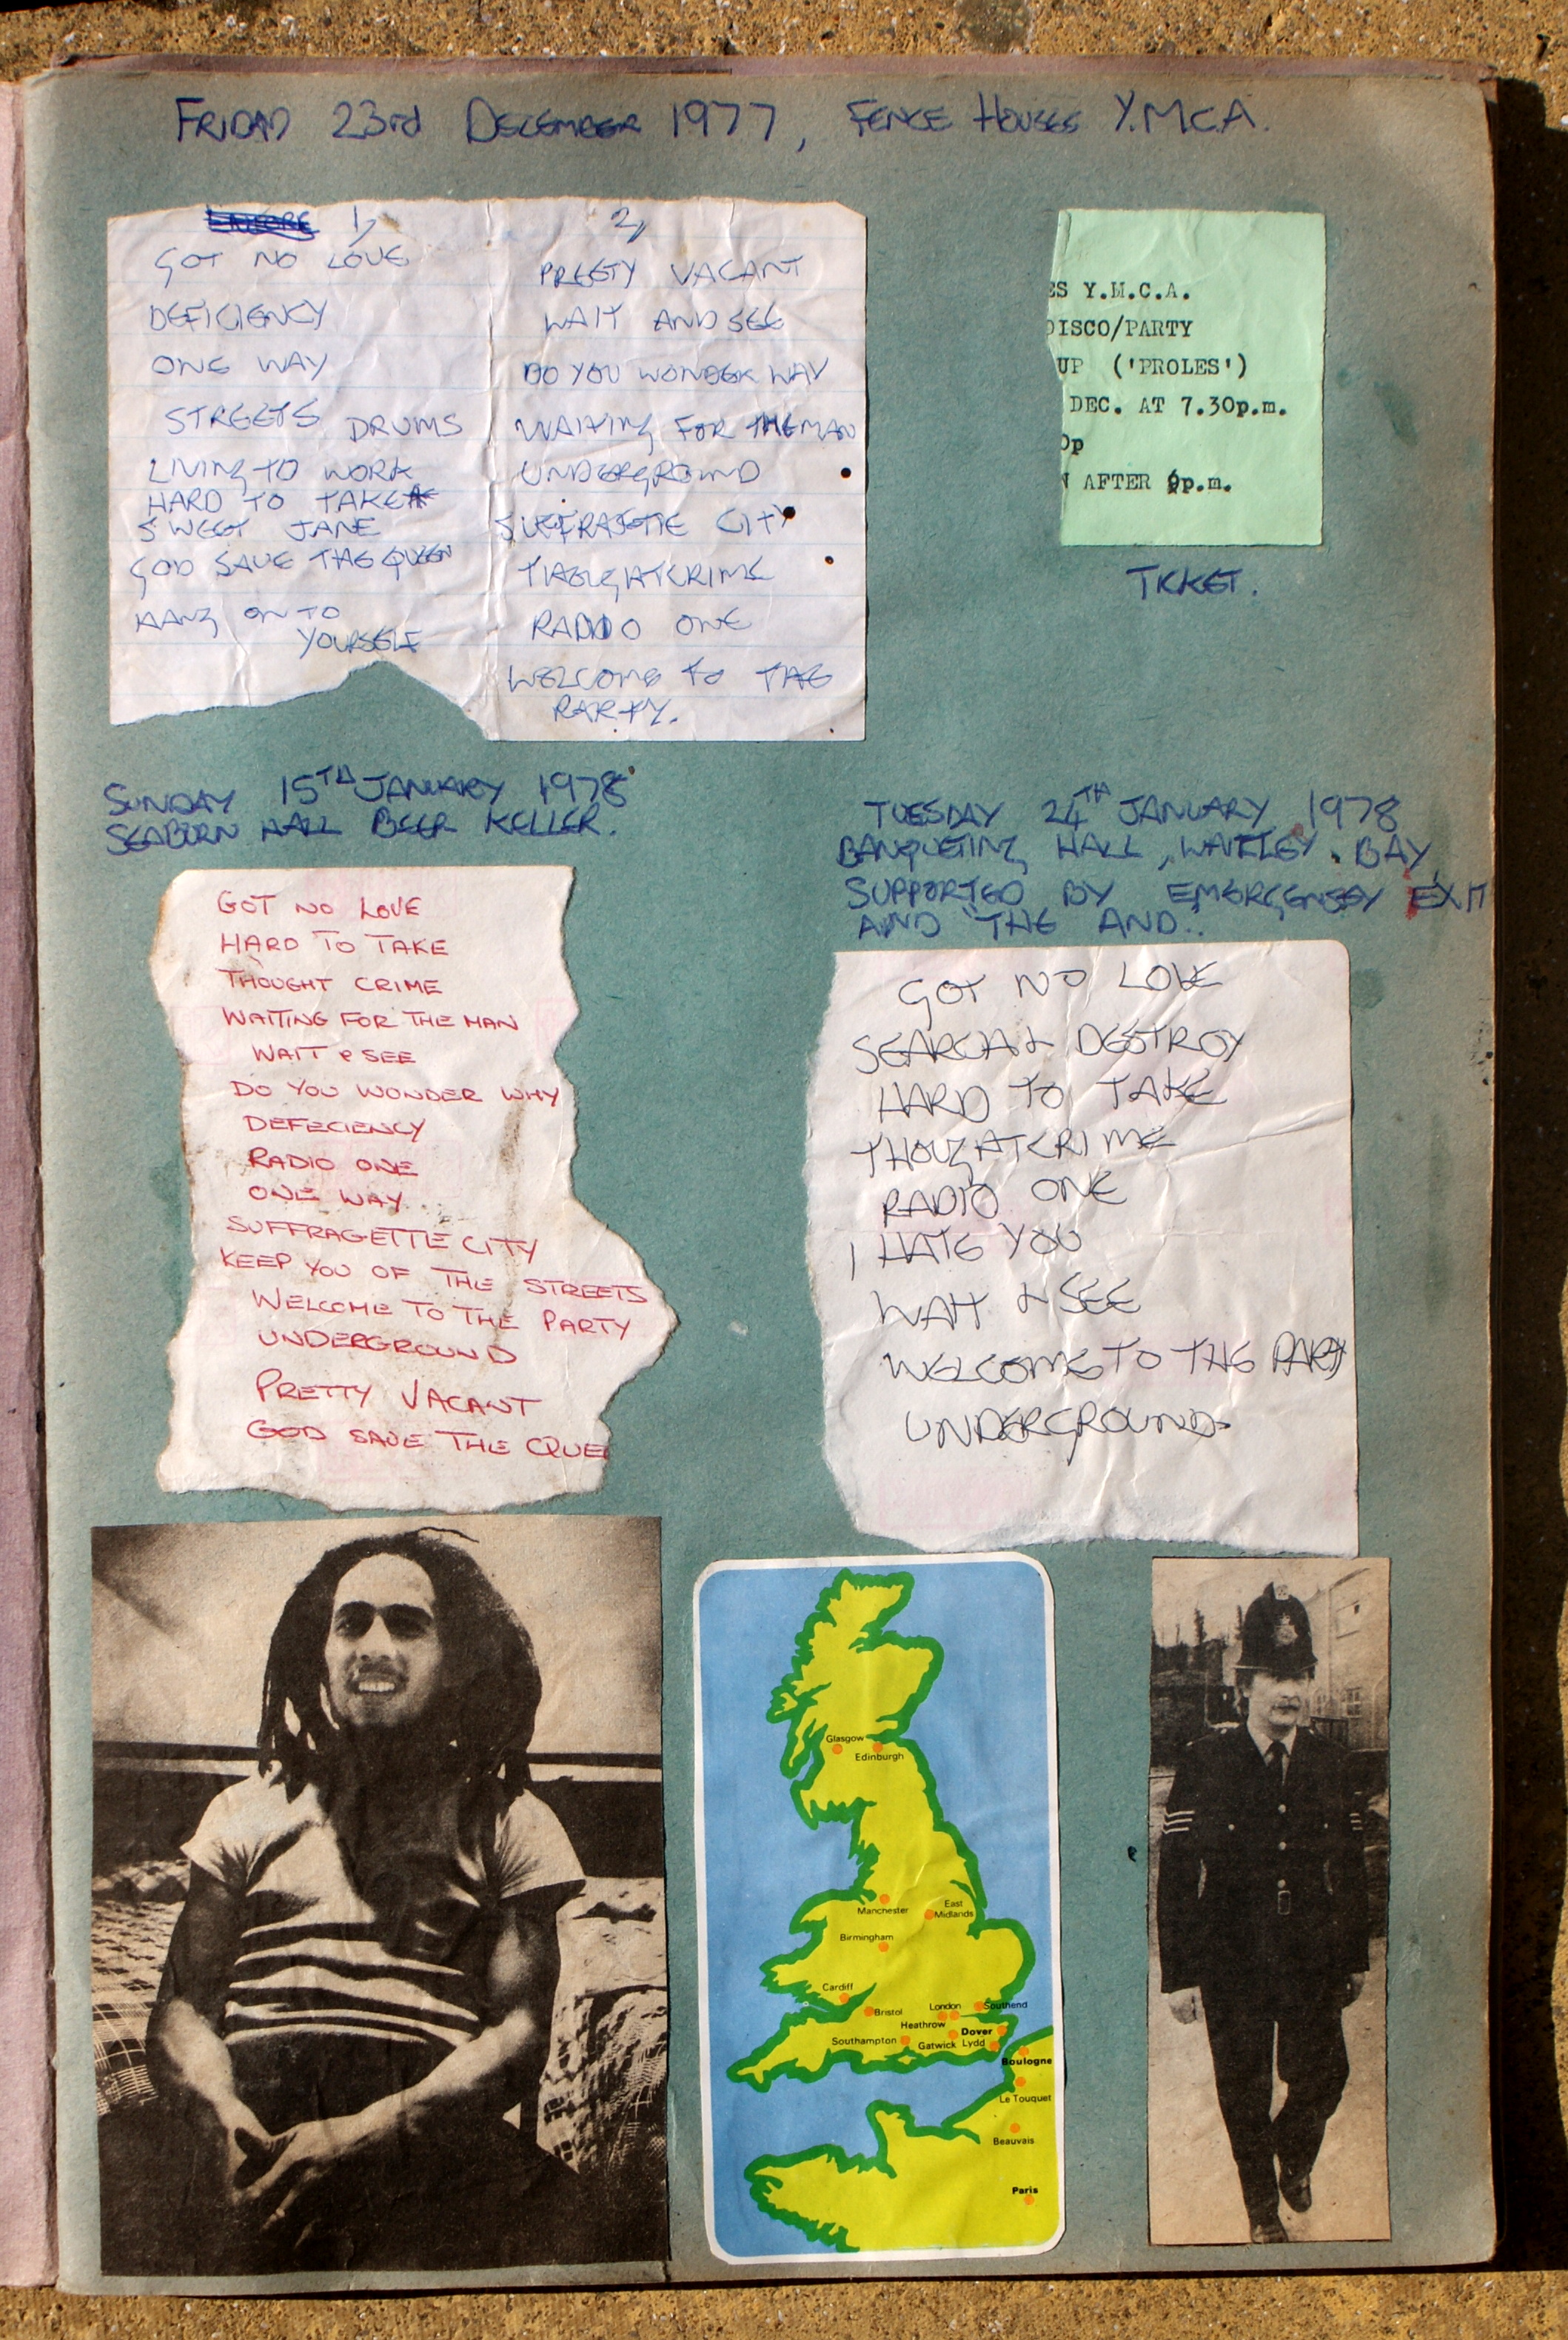 FRIDAY 23rd DECEMBER 1977, FENCE HOUSES Y.M.C.A.
1,
GOT NO LOVE
DEFICIENCY
ONE WAY
STREETS DRUMS
LIVING TO WORK
HARD TO TAKE
SWEET JANE
GOD SAVE THE QUEEN
HANG ON TO
YOURSELF
2,
PREETY VACANT
WAIT AND SEE
DO YOU WONDER WHY
WAITING FOR THE MAN
UNDERGROUND
SUFFRAGETTE CITY
RADIO ONE
WELCOME TO THE
PARTY.
ES Y.M.C.A.
DISCO/PARTY
UP ('PROLES')
DEC. AT 7.30p.m.
0p
N AFTER 9p.m.
TICKET.
SUNDAY 15TH JANUARY 1978
SEABURN HALL BEER KELLER.
GOT NO LOVE
HARD TO TAKE
THOUGHT CRIME
WAITING FOR THE MAN
WAIT & SEE
DO YOU WONDER WHY
DEFECIENCY
RADIO ONE
ONE WAY
SUFFRAGETTE CITY
KEEP YOU OF THE STREETS
WELCOME TO THE PARTY
UNDERGROUND
PRETTY VACANT
GOD SAVE THE QUEE
TUESDAY 24TH JANUARY 1978
BANQUETING HALL, WHITLEY BAY,
SUPPORTED BY EMERGENSEY EXIT
AND "THE AND..
GOT NO LOVE
SEARCH & DESTROY
HARD TO TAKE
THOUGHTCRIME
RADIO ONE
I HATE YOU
WAIT & SEE
WELCOME TO THE PARTY
UNDERGROUND
Glasgow
Edinburgh
Manchester
East
Midlands
Birmingham
Cardiff
Bristol
London
Southend
Heathrow
Dover
Southampton
Gatwick
Lydd
Boulogne
Le Touquet
Beauvais
Paris